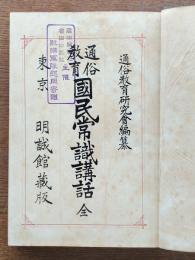 通俗教育研究會編纂
通俗
教育
國民常識講話 全
東京 明誠館藏版